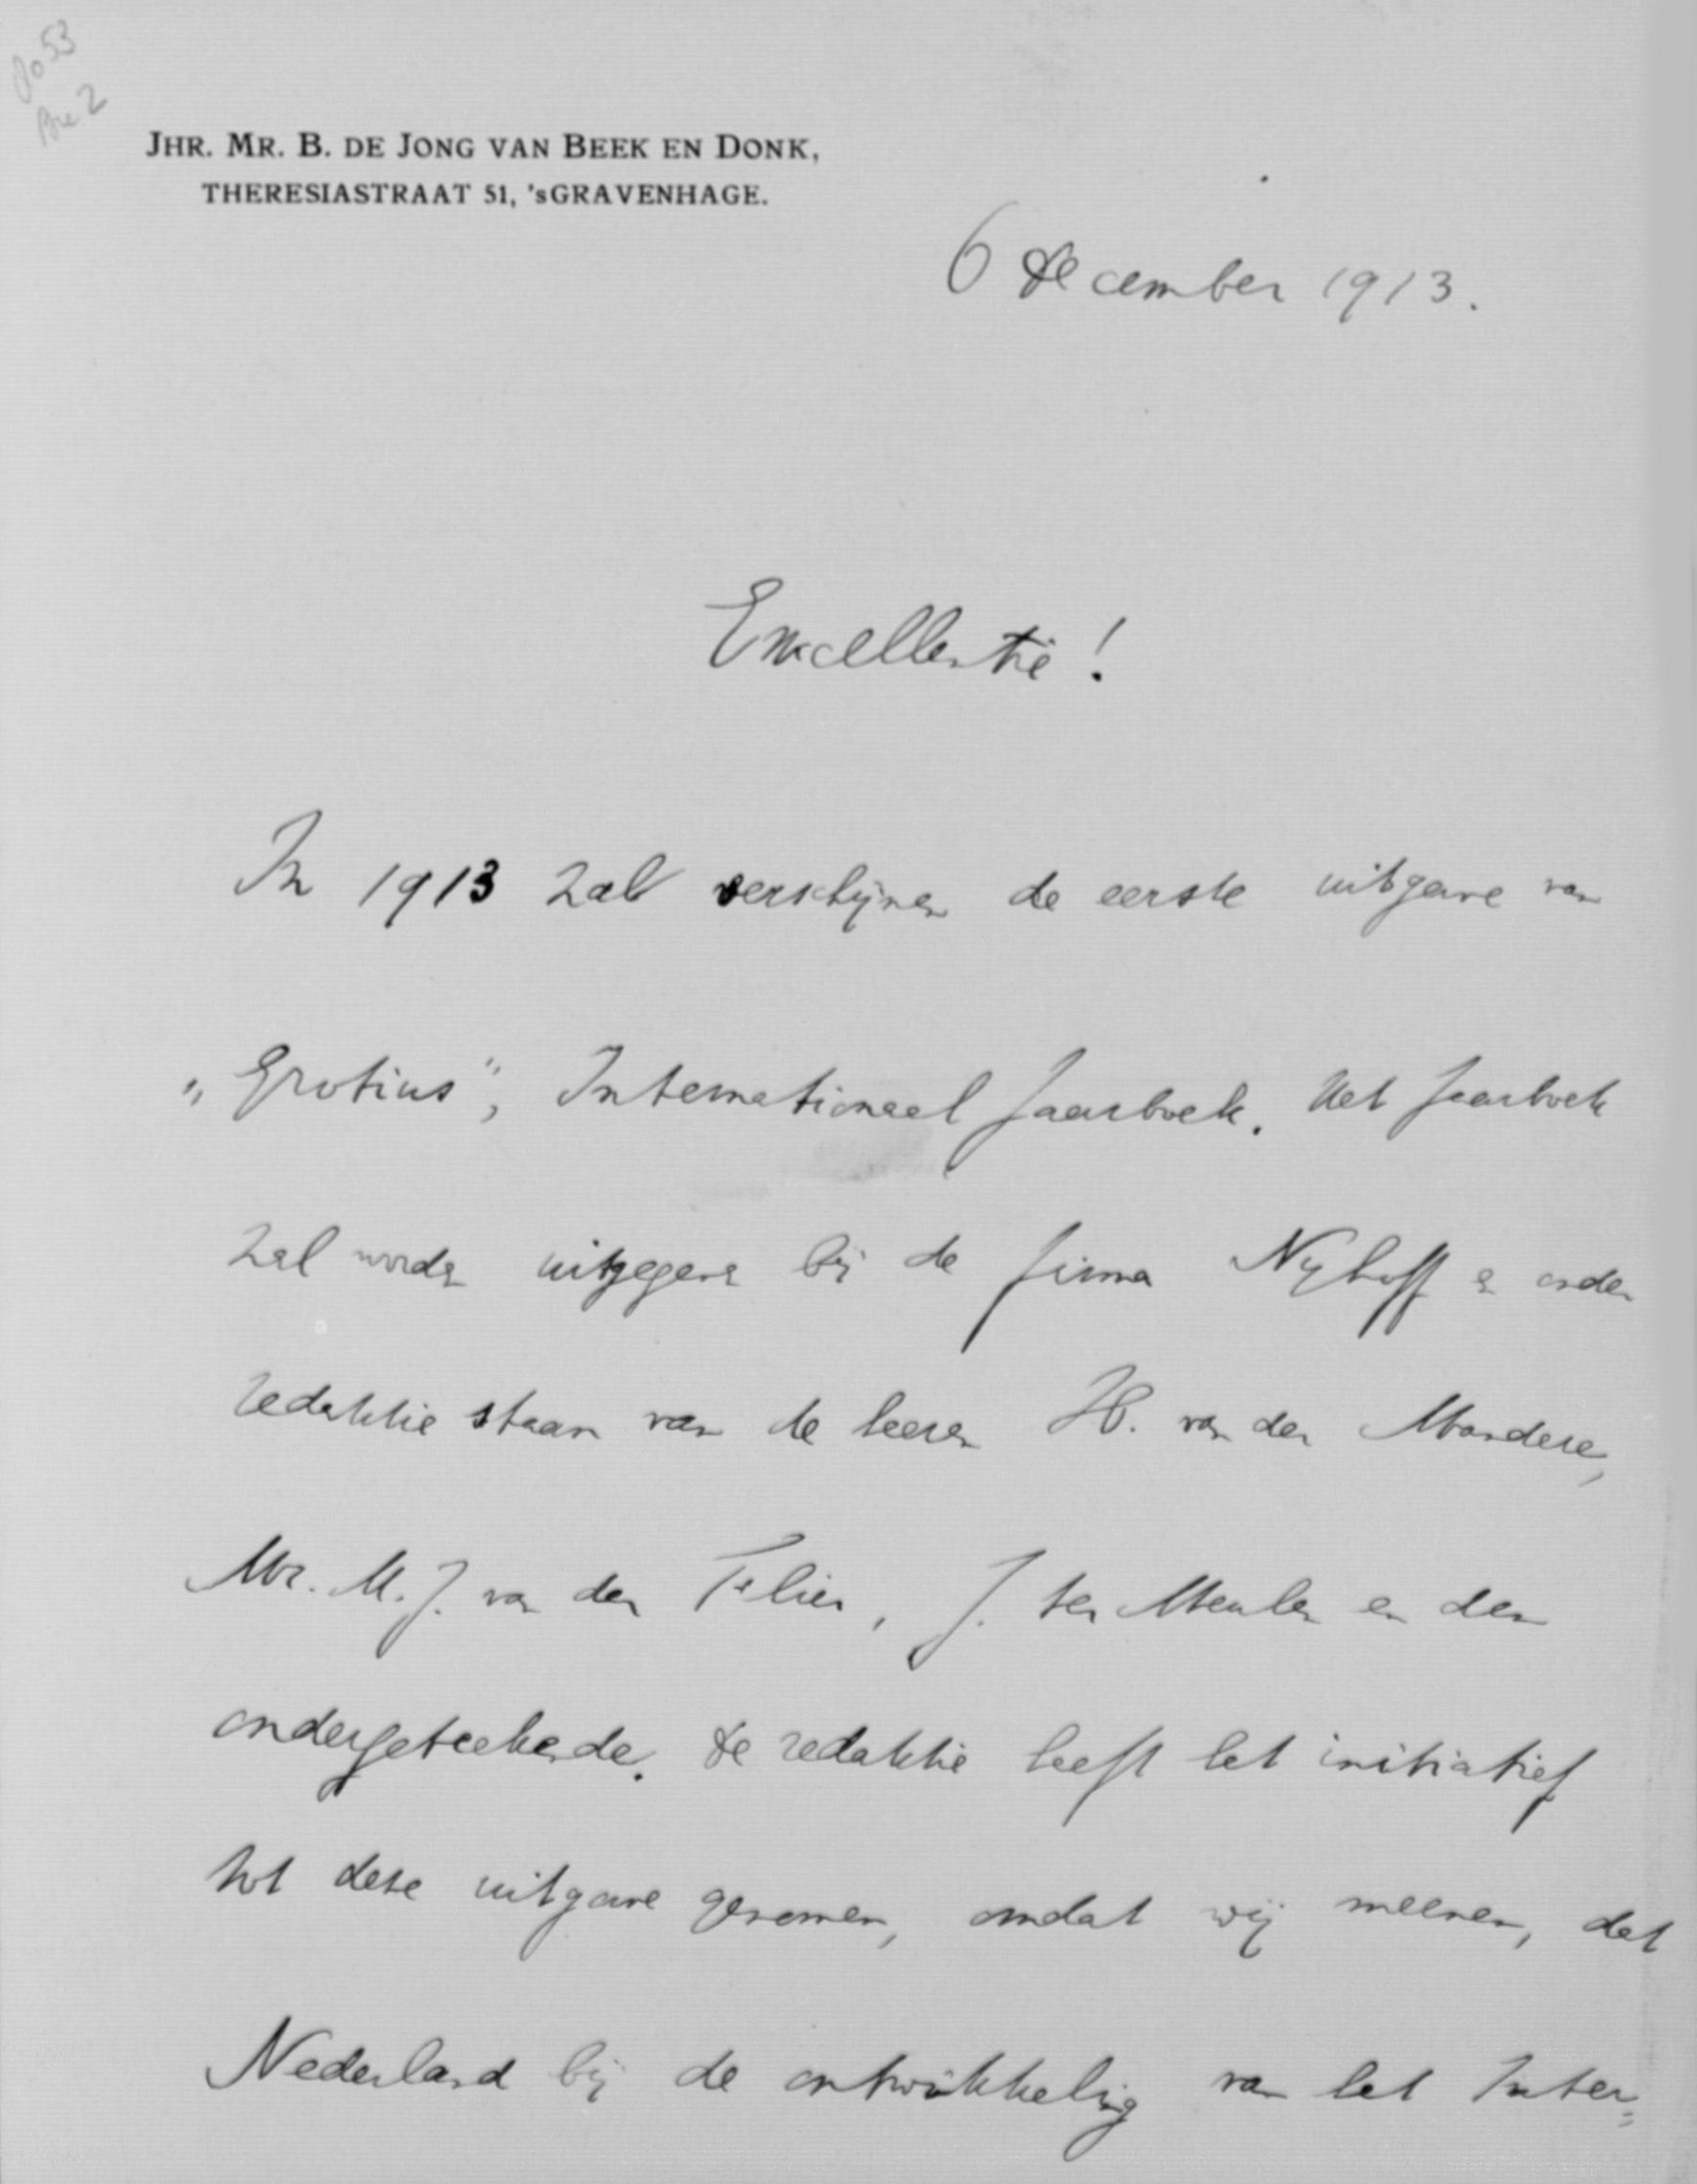 JHR. MR. B. DE JONG VAN BEEK EN DONK,
THERESIASTRAAT 51, 'sGRAVENHAGE.
6 December 1913.
Excellentie!
In 1913 zal verschijnen de eerste uitgave van
„Grotius", Internationaal Jaarboek. Het Jaarboek
zal worden uitgegeven bij de firma Nijhoff en onder
redaktie staan van de heeren H. van der Mandere,
Mr. M. J. van der Flier, J. ter Meulen en den
ondergeteekende. De redaktie heeft het initiatief
tot deze uitgave genomen, omdat wij meenen, dat
Nederland bij de ontwikkeling van het Inter=